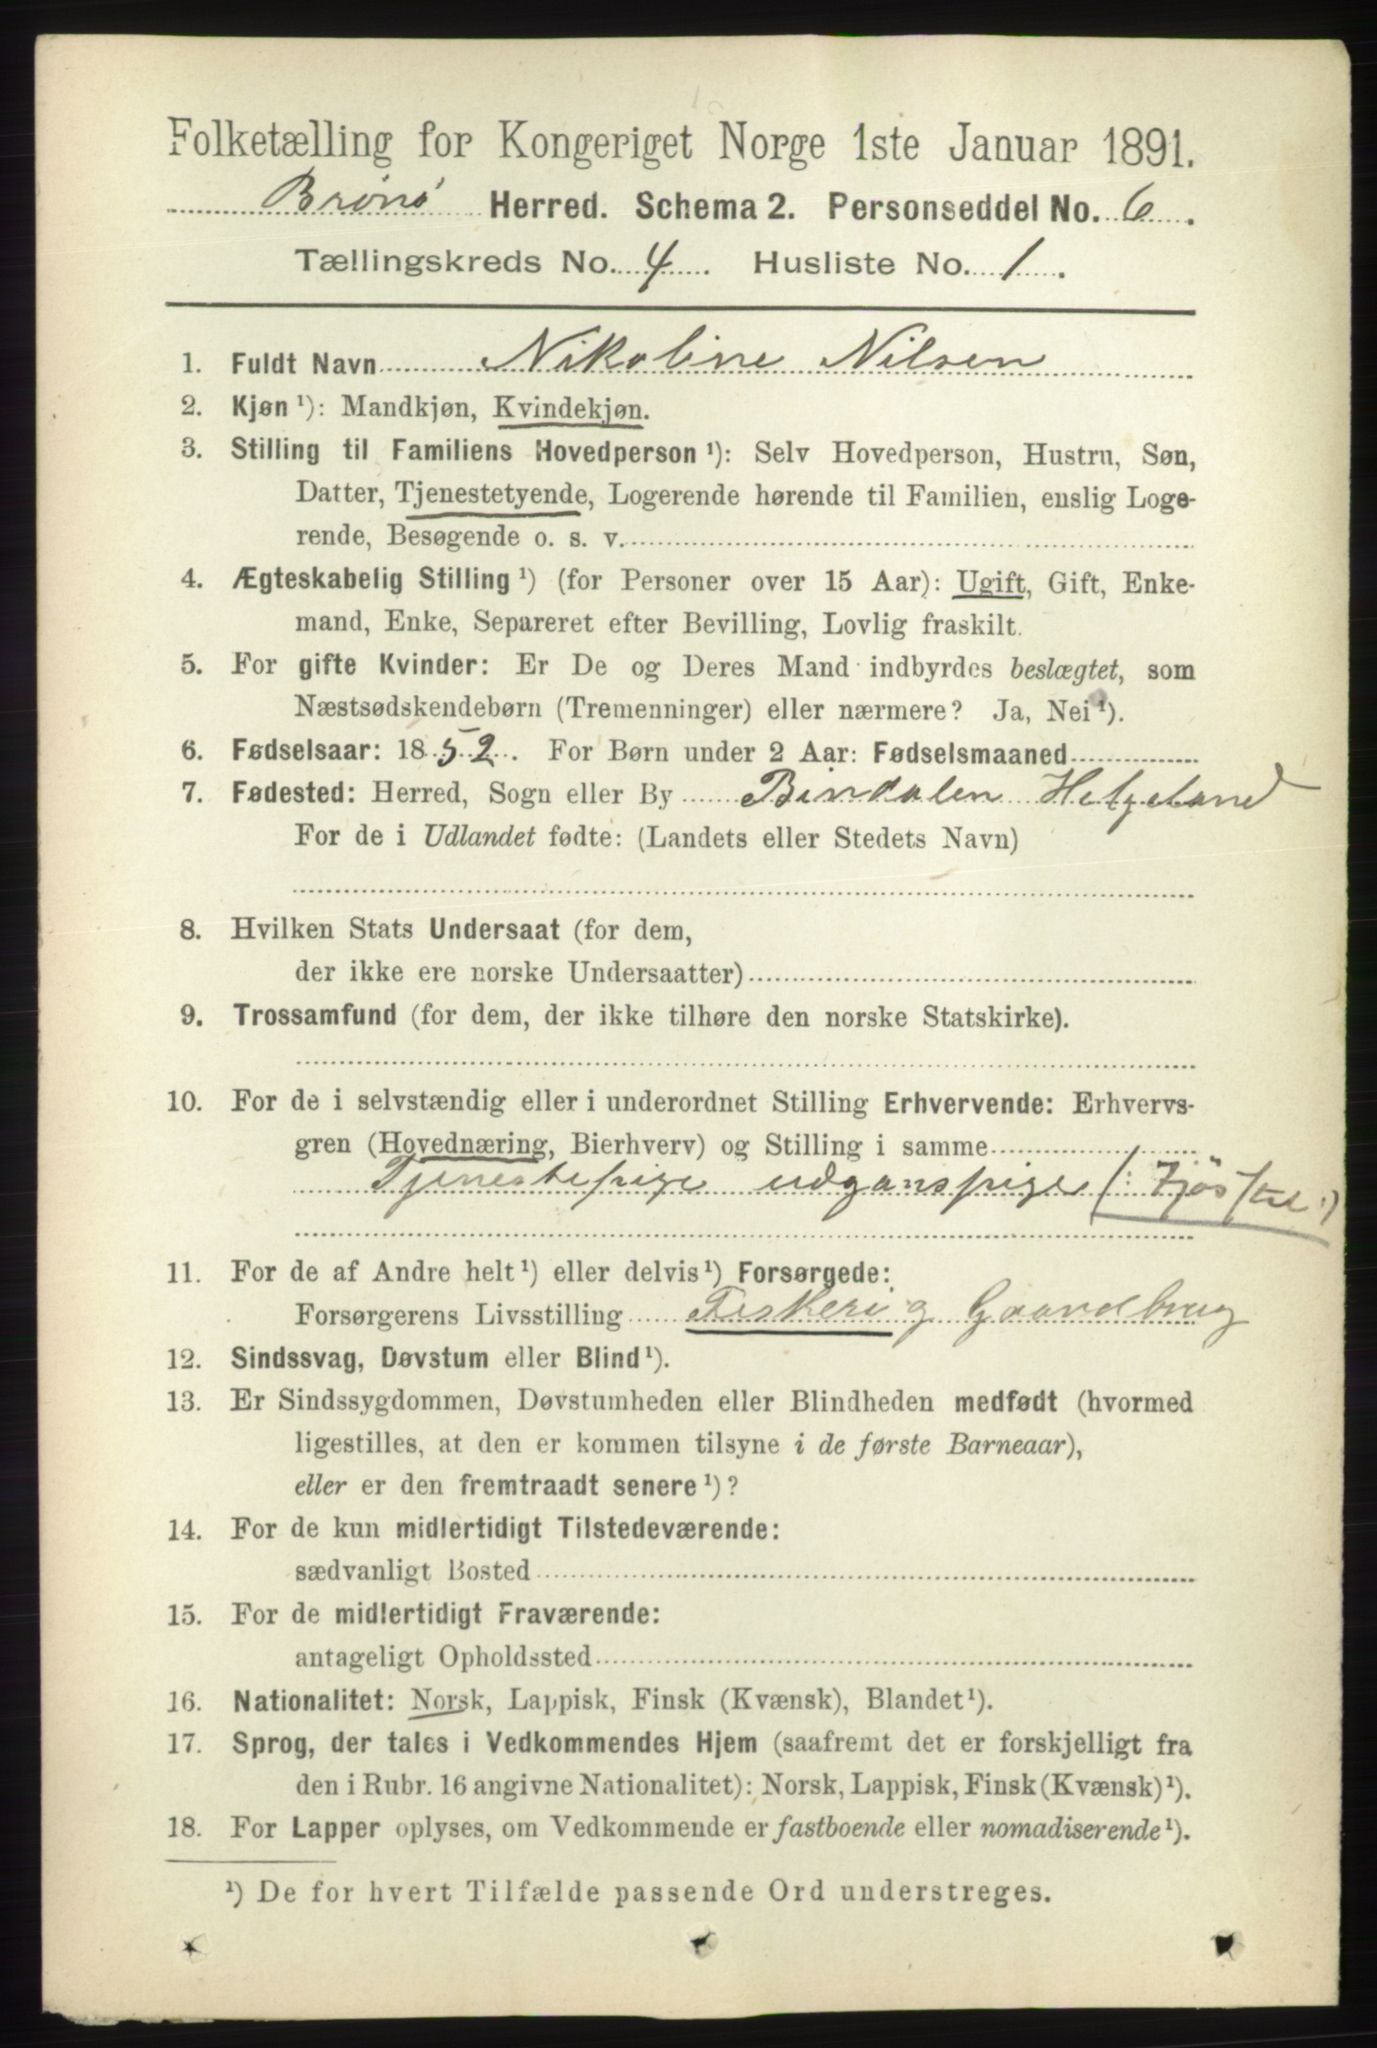 Folketælling for Kongeriget Norge 1ste Januar 1891.
Brønø Herred. Schema 2. Personseddel No. 6.
Tællingskreds No. 4. Husliste No. 1.
1. Fuldt Navn Nikoline Nilsen
2. Kjøn ¹): Mandkjøn, Kvindekjøn.
3. Stilling til Familiens Hovedperson ¹): Selv Hovedperson, Hustru, Søn,
Datter, Tjenestetyende, Logerende hørende til Familien, enslig Loge-
rende, Besøgende o. s. v.
4. Ægteskabelig Stilling ¹) (for Personer over 15 Aar): Ugift, Gift, Enke-
mand, Enke, Separeret efter Bevilling, Lovlig fraskilt.
5. For gifte Kvinder: Er De og Deres Mand indbyrdes beslægtet, som
Næstsødskendebørn (Tremenninger) eller nærmere? Ja, Nei ¹).
6. Fødselsaar: 1852. For Børn under 2 Aar: Fødselsmaaned
7. Fødested: Herred, Sogn eller By Bindalen Helgeland
For de i Udlandet fødte: (Landets eller Stedets Navn)
8. Hvilken Stats Undersaat (for dem,
der ikke ere norske Undersaatter)
9. Trossamfund (for dem, der ikke tilhøre den norske Statskirke).
10. For de i selvstændig eller i underordnet Stilling Erhvervende: Erhvervs-
gren (Hovednæring, Bierhverv) og Stilling i samme
Tjenestepige udganspige (: Fjøsstel :)
11. For de af Andre helt ¹) eller delvis ¹) Forsørgede:
Forsørgerens Livsstilling Fiskeri g Gaardbrug
12. Sindssvag, Døvstum eller Blind ¹).
13. Er Sindssygdommen, Døvstumheden eller Blindheden medfødt (hvormed
ligestilles, at den er kommen tilsyne i de første Barneaar),
eller er den fremtraadt senere ¹)?
14. For de kun midlertidigt Tilstedeværende:
sædvanligt Bosted
15. For de midlertidigt Fraværende:
antageligt Opholdssted
16. Nationalitet: Norsk, Lappisk, Finsk (Kvænsk), Blandet ¹).
17. Sprog, der tales i Vedkommendes Hjem (saafremt det er forskjelligt fra
den i Rubr. 16 angivne Nationalitet): Norsk, Lappisk, Finsk (Kvænsk) ¹).
18. For Lapper oplyses, om Vedkommende er fastboende eller nomadiserende ¹).
¹) De for hvert Tilfælde passende Ord understreges.